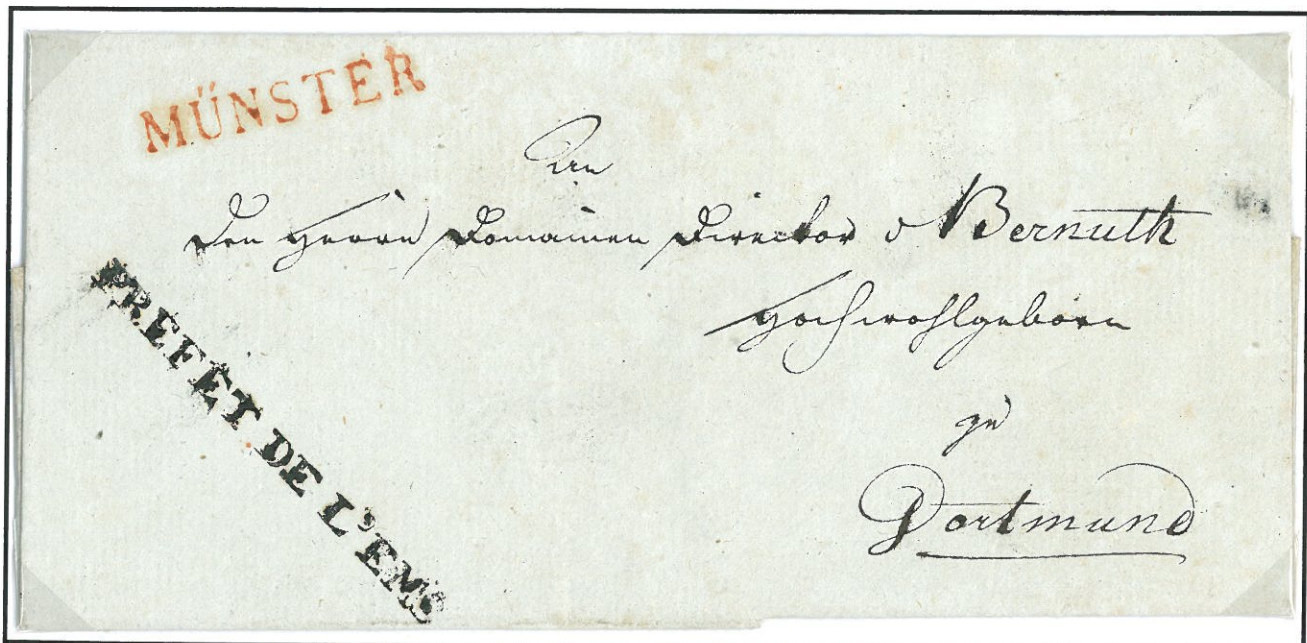 MÜNSTER
An
den Herrn Domainen Director v Bernuth
Hochwohlgeborn
zu
Dortmund
PREFET DE L'EMS